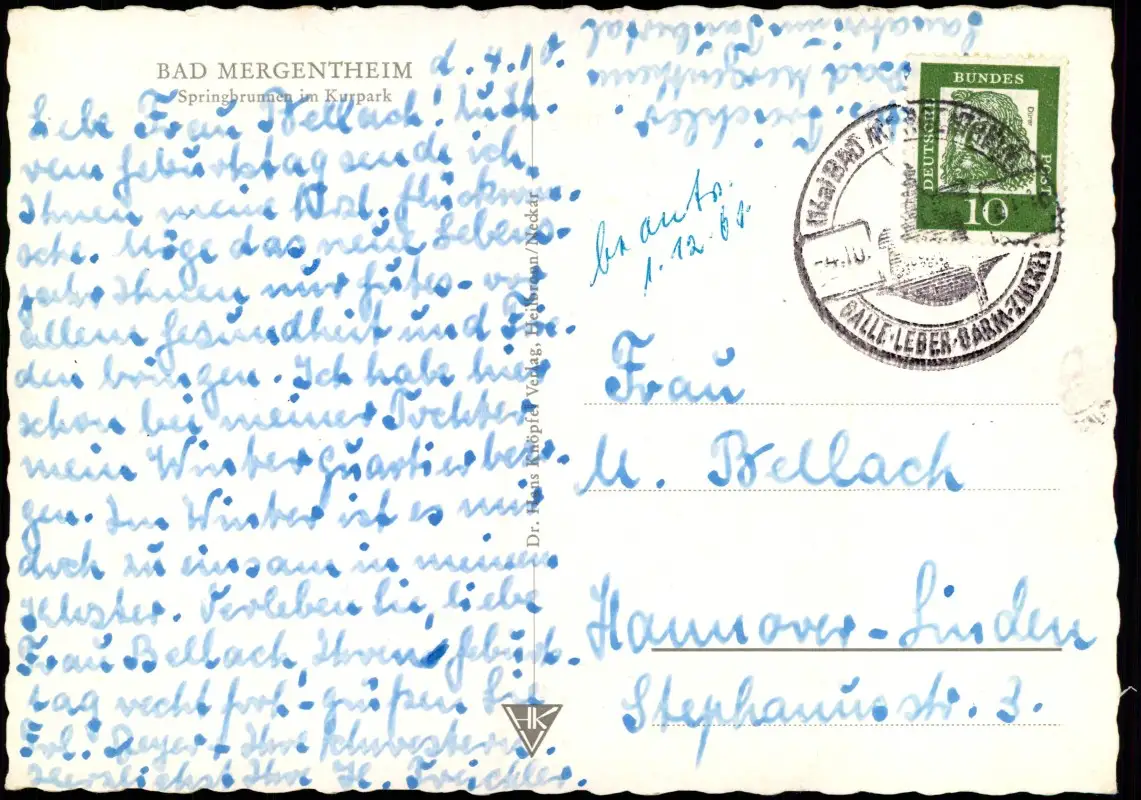 BAD MERGENTHEIM
Springbrunnen im Kurpark
d. 4.10.
Liebe Frau Bellach! Zu Ih-
rem Geburtstag sende ich
Ihnen meine herzl. Glückwün-
sche. Möge das neue Lebens-
jahr Ihnen nur Gutes - vor
allem Gesundheit und Frie-
den bringen. Ich habe hier
schon bei meiner Tochter
mein Winterquartier bezo-
gen. Im Winter ist es mir
doch zu einsam in meinem
Kloster. Verleben Sie, liebe
Frau Bellach, Ihren Geburts-
tag recht froh - grüßen Sie
Frl. Geyer + Ihre Schwestern.
Herzlichst Ihre H. Treichler.
Dr. Hans Knöpfel Verlag, Heilbronn/Neckar
HK
Treichler
Bad Mergentheim
Sanatorium Taubertal
beantw.
1.12.61
DEUTSCHE
BUNDES
POST
Dürer
10
BAD MERGENTHEIM
-4.10.
GALLE·LEBER·DARM·ZUCKER
Frau
M. Bellach
Hannover-Linden
Stephanusstr. 3.